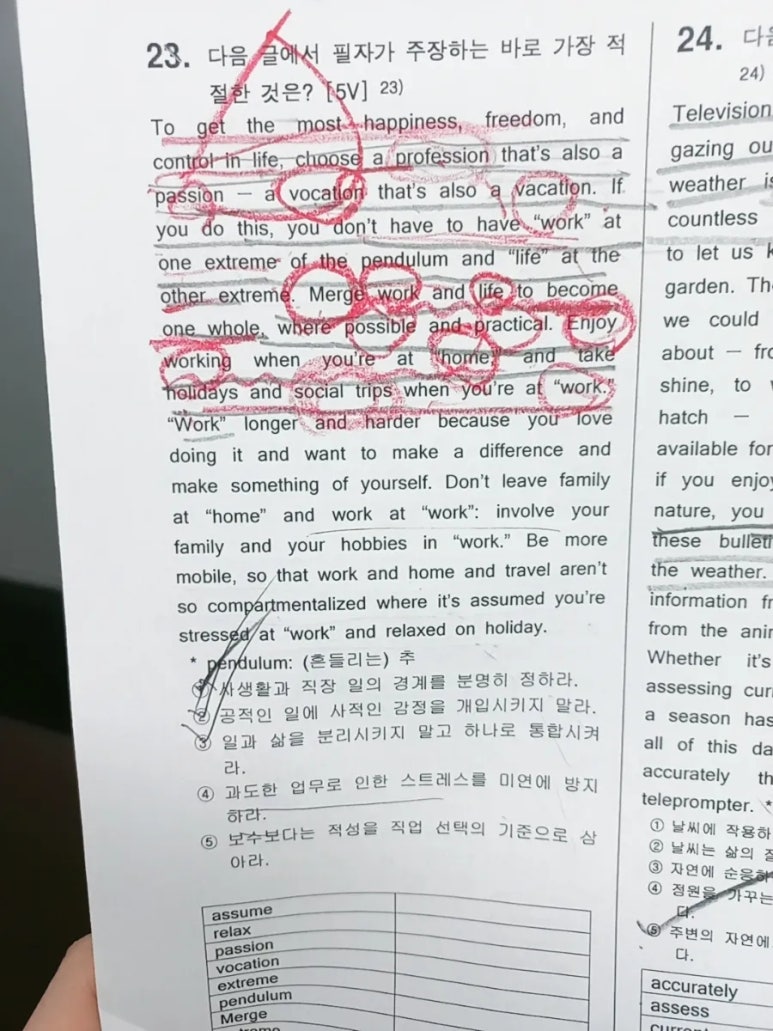 23. 다음 글에서 필자가 주장하는 바로 가장 적
절한 것은? [5V] 23)
To get the most happiness, freedom, and
control in life, choose a profession that's also a
passion — a vocation that's also a vacation. If
you do this, you don't have to have “work” at
one extreme of the pendulum and “life” at the
other extreme. Merge work and life to become
one whole, where possible and practical. Enjoy
working when you're at “home” and take
holidays and social trips when you're at “work.”
“Work” longer and harder because you love
doing it and want to make a difference and
make something of yourself. Don't leave family
at “home” and work at “work”: involve your
family and your hobbies in “work.” Be more
mobile, so that work and home and travel aren't
so compartmentalized where it's assumed you're
stressed at “work” and relaxed on holiday.
* pendulum: (흔들리는) 추
① 사생활과 직장 일의 경계를 분명히 정하라.
② 공적인 일에 사적인 감정을 개입시키지 말라.
③ 일과 삶을 분리시키지 말고 하나로 통합시켜
라.
④ 과도한 업무로 인한 스트레스를 미연에 방지
하라.
⑤ 보수보다는 적성을 직업 선택의 기준으로 삼
아라.
assume
relax
passion
vocation
extreme
pendulum
Merge
24. 다음
24)
Television
gazing
weather
countless
to let us
garden.
we could
about —
shine, to
hatch —
available for
if you enjoy
nature, you
these
the weather.
information
from the
Whether it's
assessing
a season has
all of this
accurately
teleprompter. *
① 날씨에 작용하
② 날씨는 삶의
③ 자연에 순응하
④ 정원을 가꾸는
다.
⑤ 주변의 자연에
다.
accurately
assess